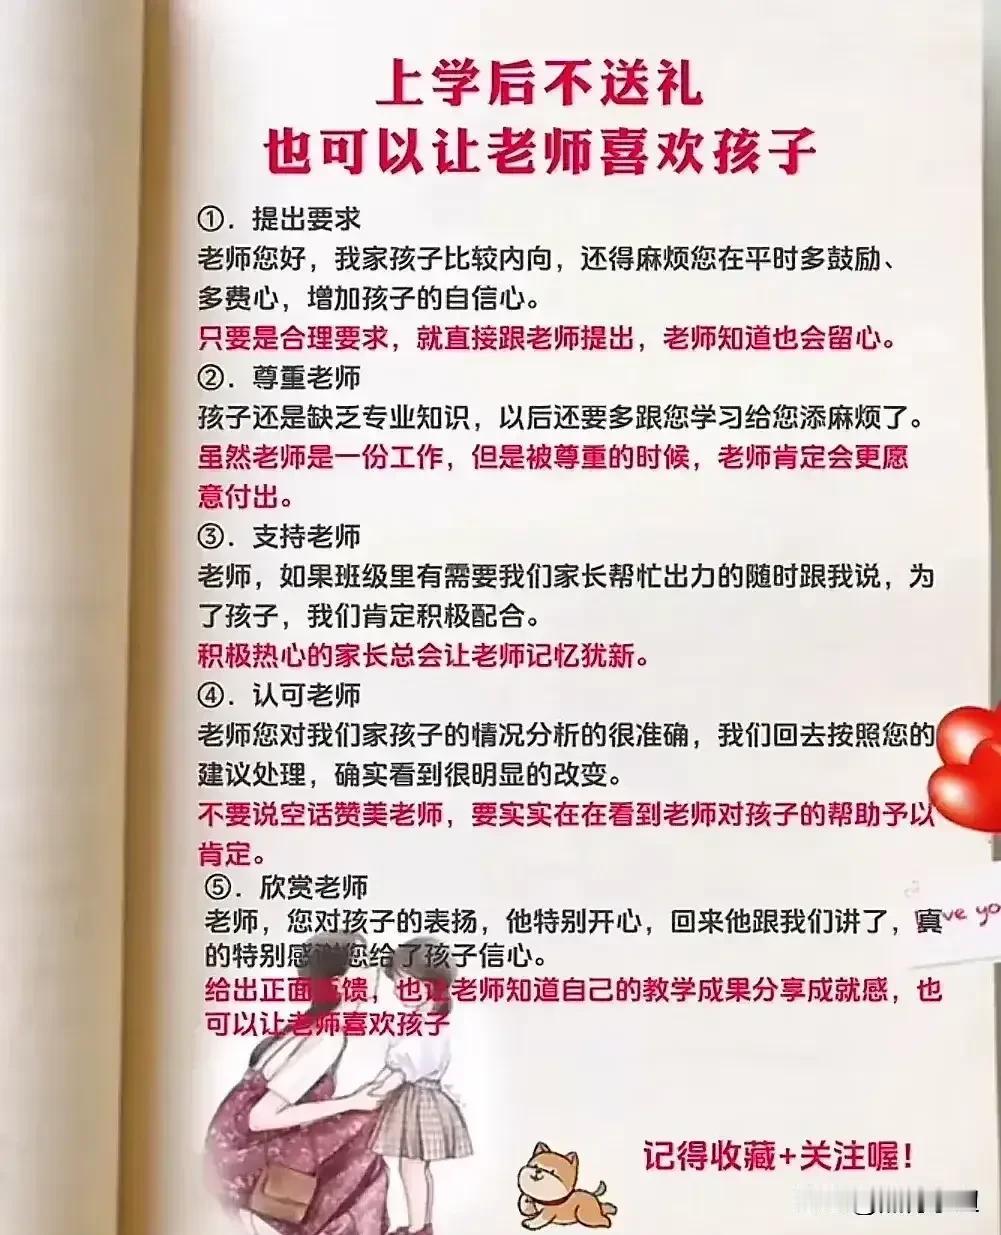 上学后不送礼
也可以让老师喜欢孩子
①．提出要求
老师您好，我家孩子比较内向，还得麻烦您在平时多鼓励、
多费心，增加孩子的自信心。
只要是合理要求，就直接跟老师提出，老师知道也会留心。
②．尊重老师
孩子还是缺乏专业知识，以后还要多跟您学习给您添麻烦了。
虽然老师是一份工作，但是被尊重的时候，老师肯定会更愿
意付出。
③．支持老师
老师，如果班级里有需要我们家长帮忙出力的随时跟我说，为
了孩子，我们肯定积极配合。
积极热心的家长总会让老师记忆犹新。
④．认可老师
老师您对我们家孩子的情况分析的很准确，我们回去按照您的
建议处理，确实看到很明显的改变。
不要说空话赞美老师，要实实在在看到老师对孩子的帮助予以
肯定。
⑤．欣赏老师
老师，您对孩子的表扬，他特别开心，回来他跟我们讲了，真
的特别感谢您给了孩子信心。
给出正面反馈，也让老师知道自己的教学成果分享成就感，也
可以让老师喜欢孩子
ve yo
记得收藏+关注喔！